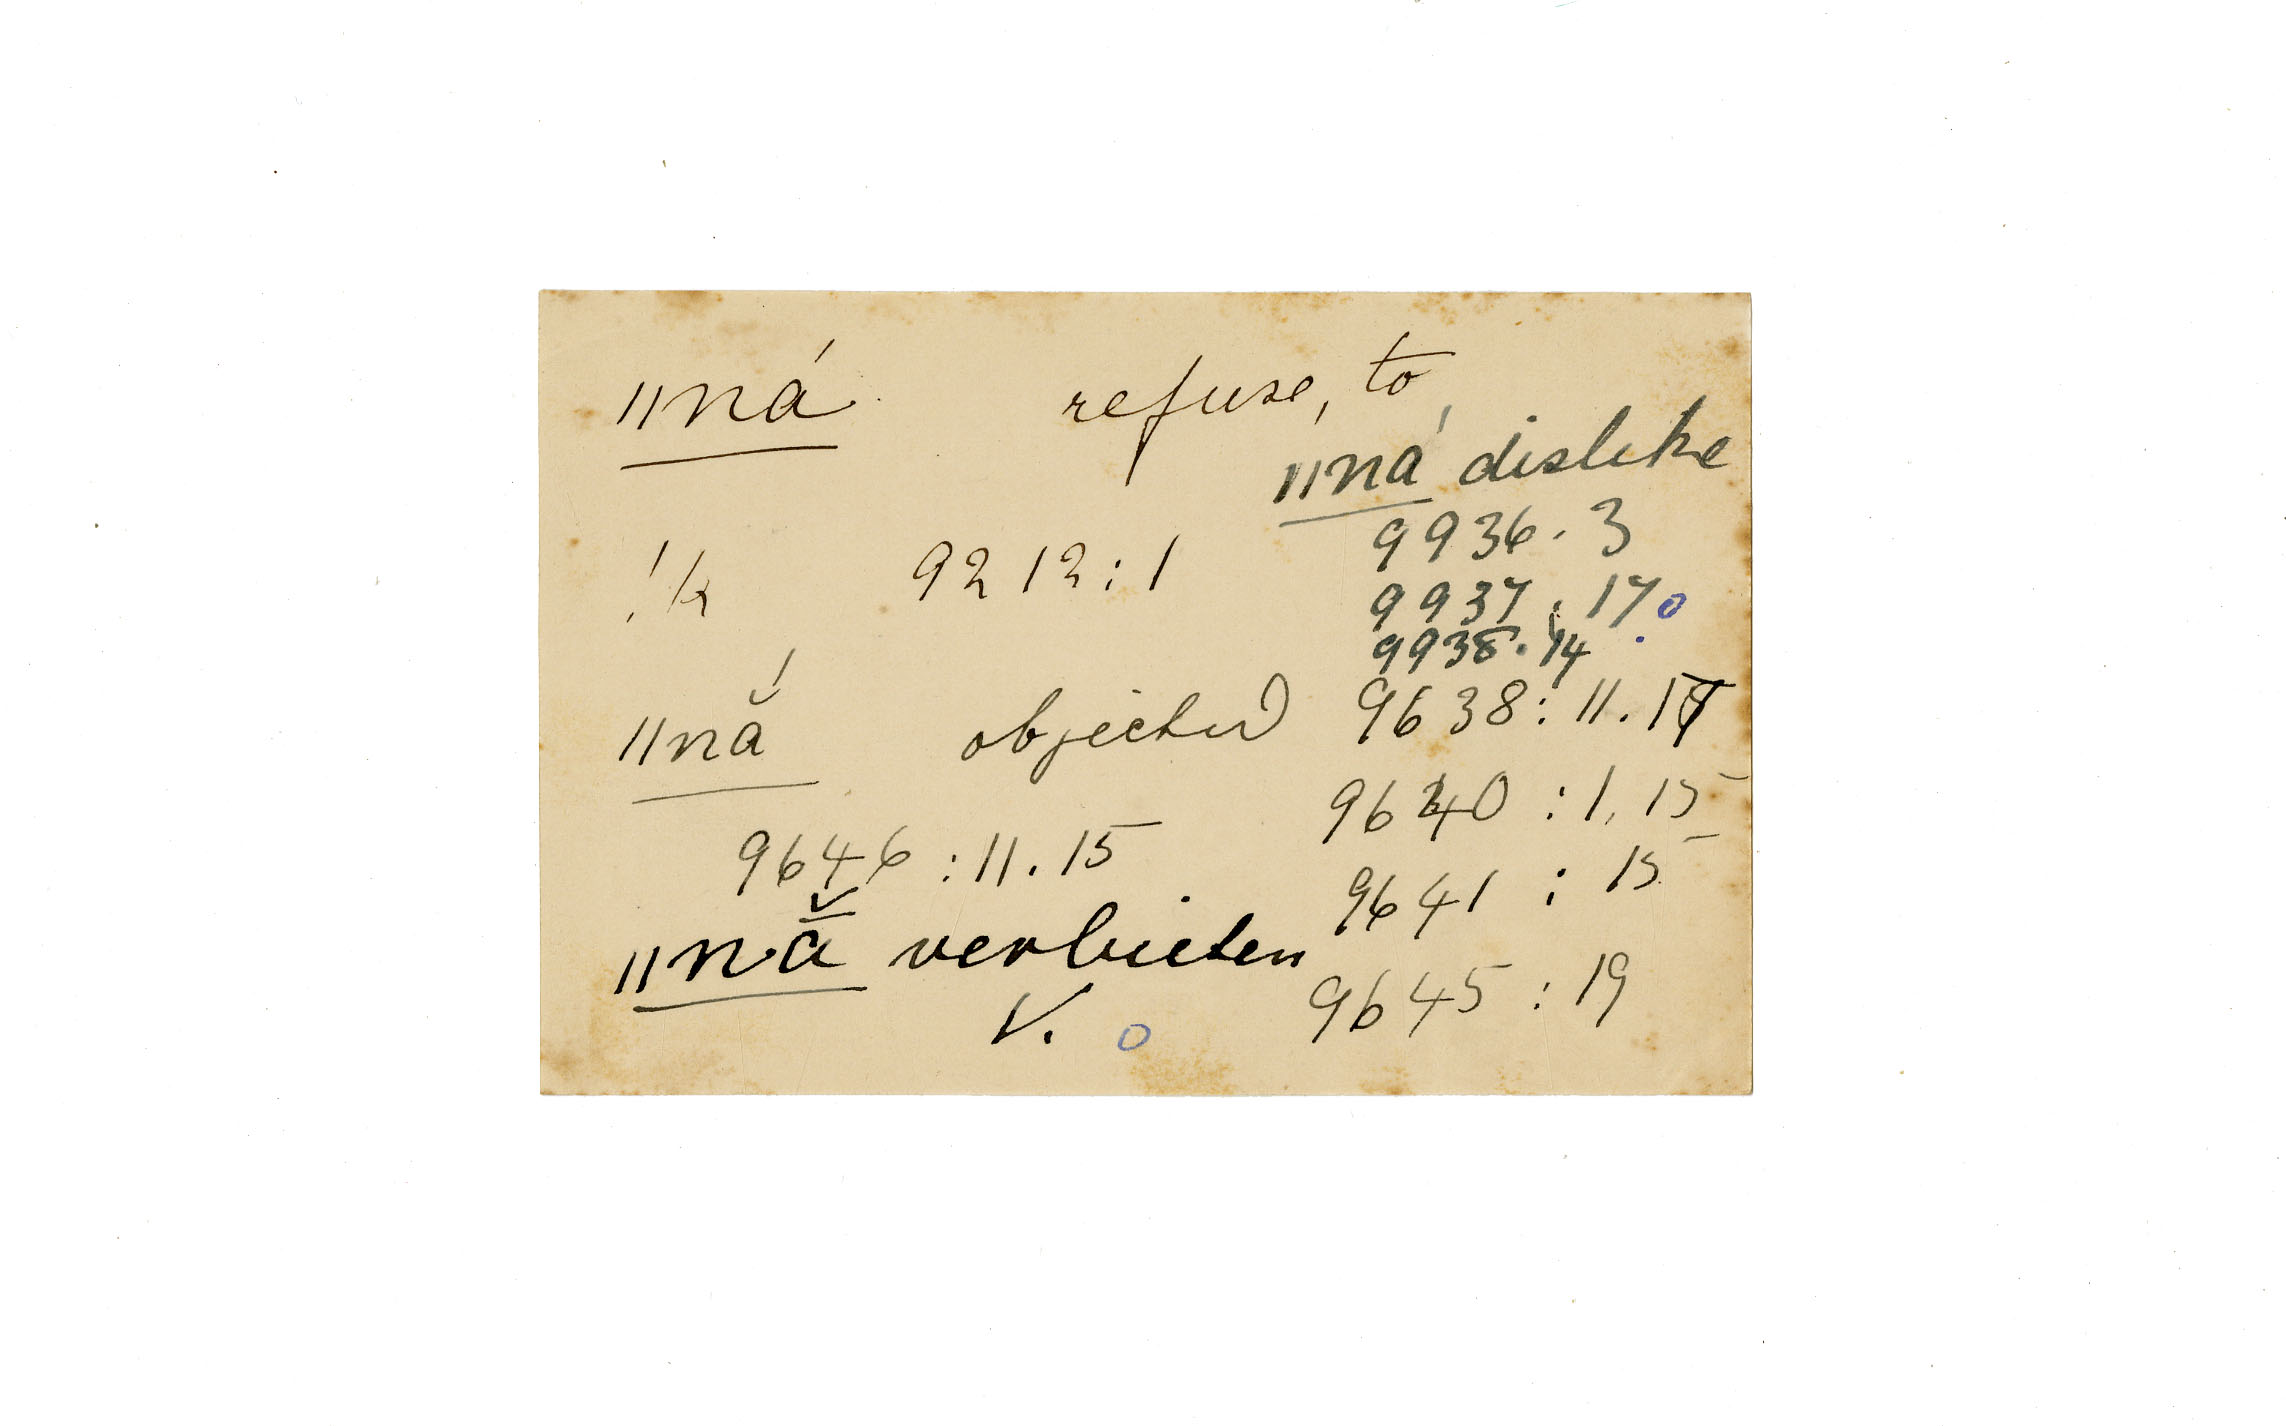 ǁná refuse, to
ǁná dislike
9936. 3
!k 9212:1
9937. 17
9938. 14
ǁnắ objected 9638: 11.
9640 : 1, 15
9646 : 11. 15
9641 : 15
ǁnā̆ verbieten
9645 : 19
V.